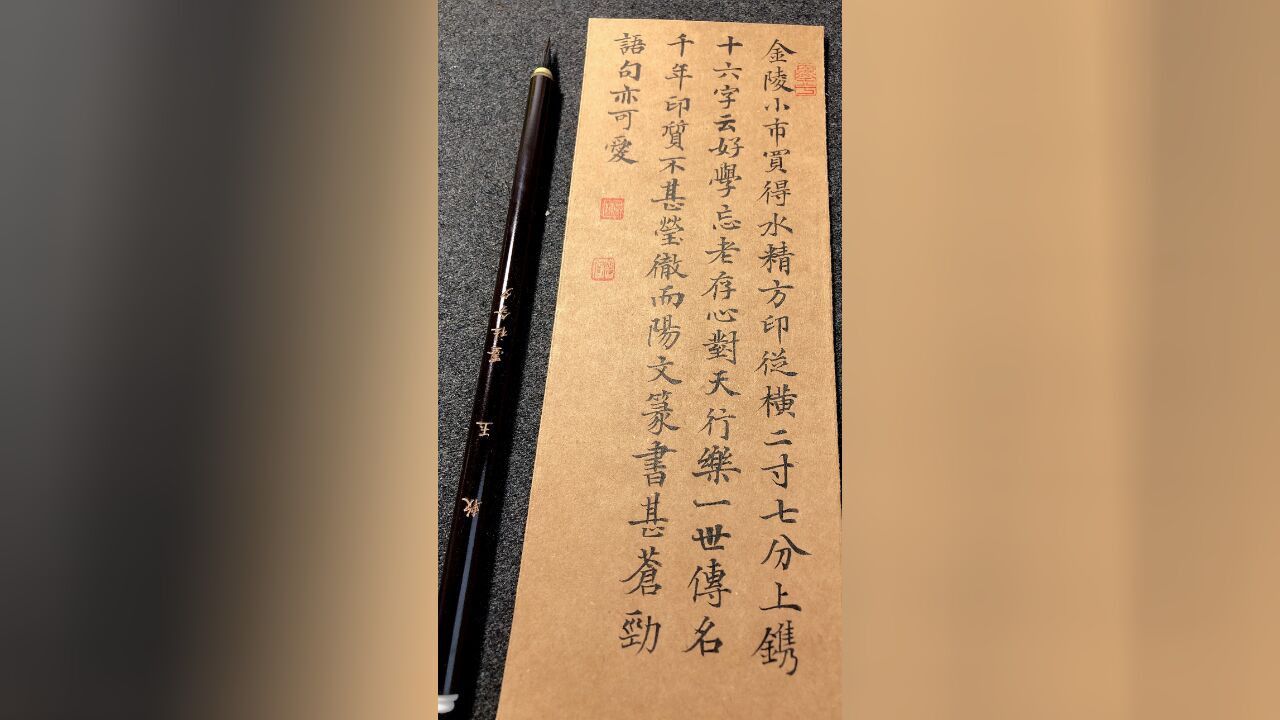 金陵小市買得水精方印從橫二寸七分上鐫
十六字云好學忘老存心對天行樂一世傳名
千年印質不甚瑩徹而陽文篆書甚蒼勁
語句亦可愛